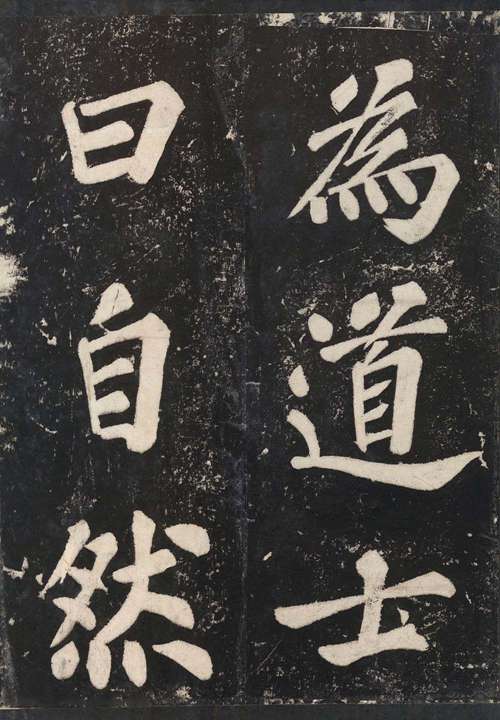 為道士
曰自然